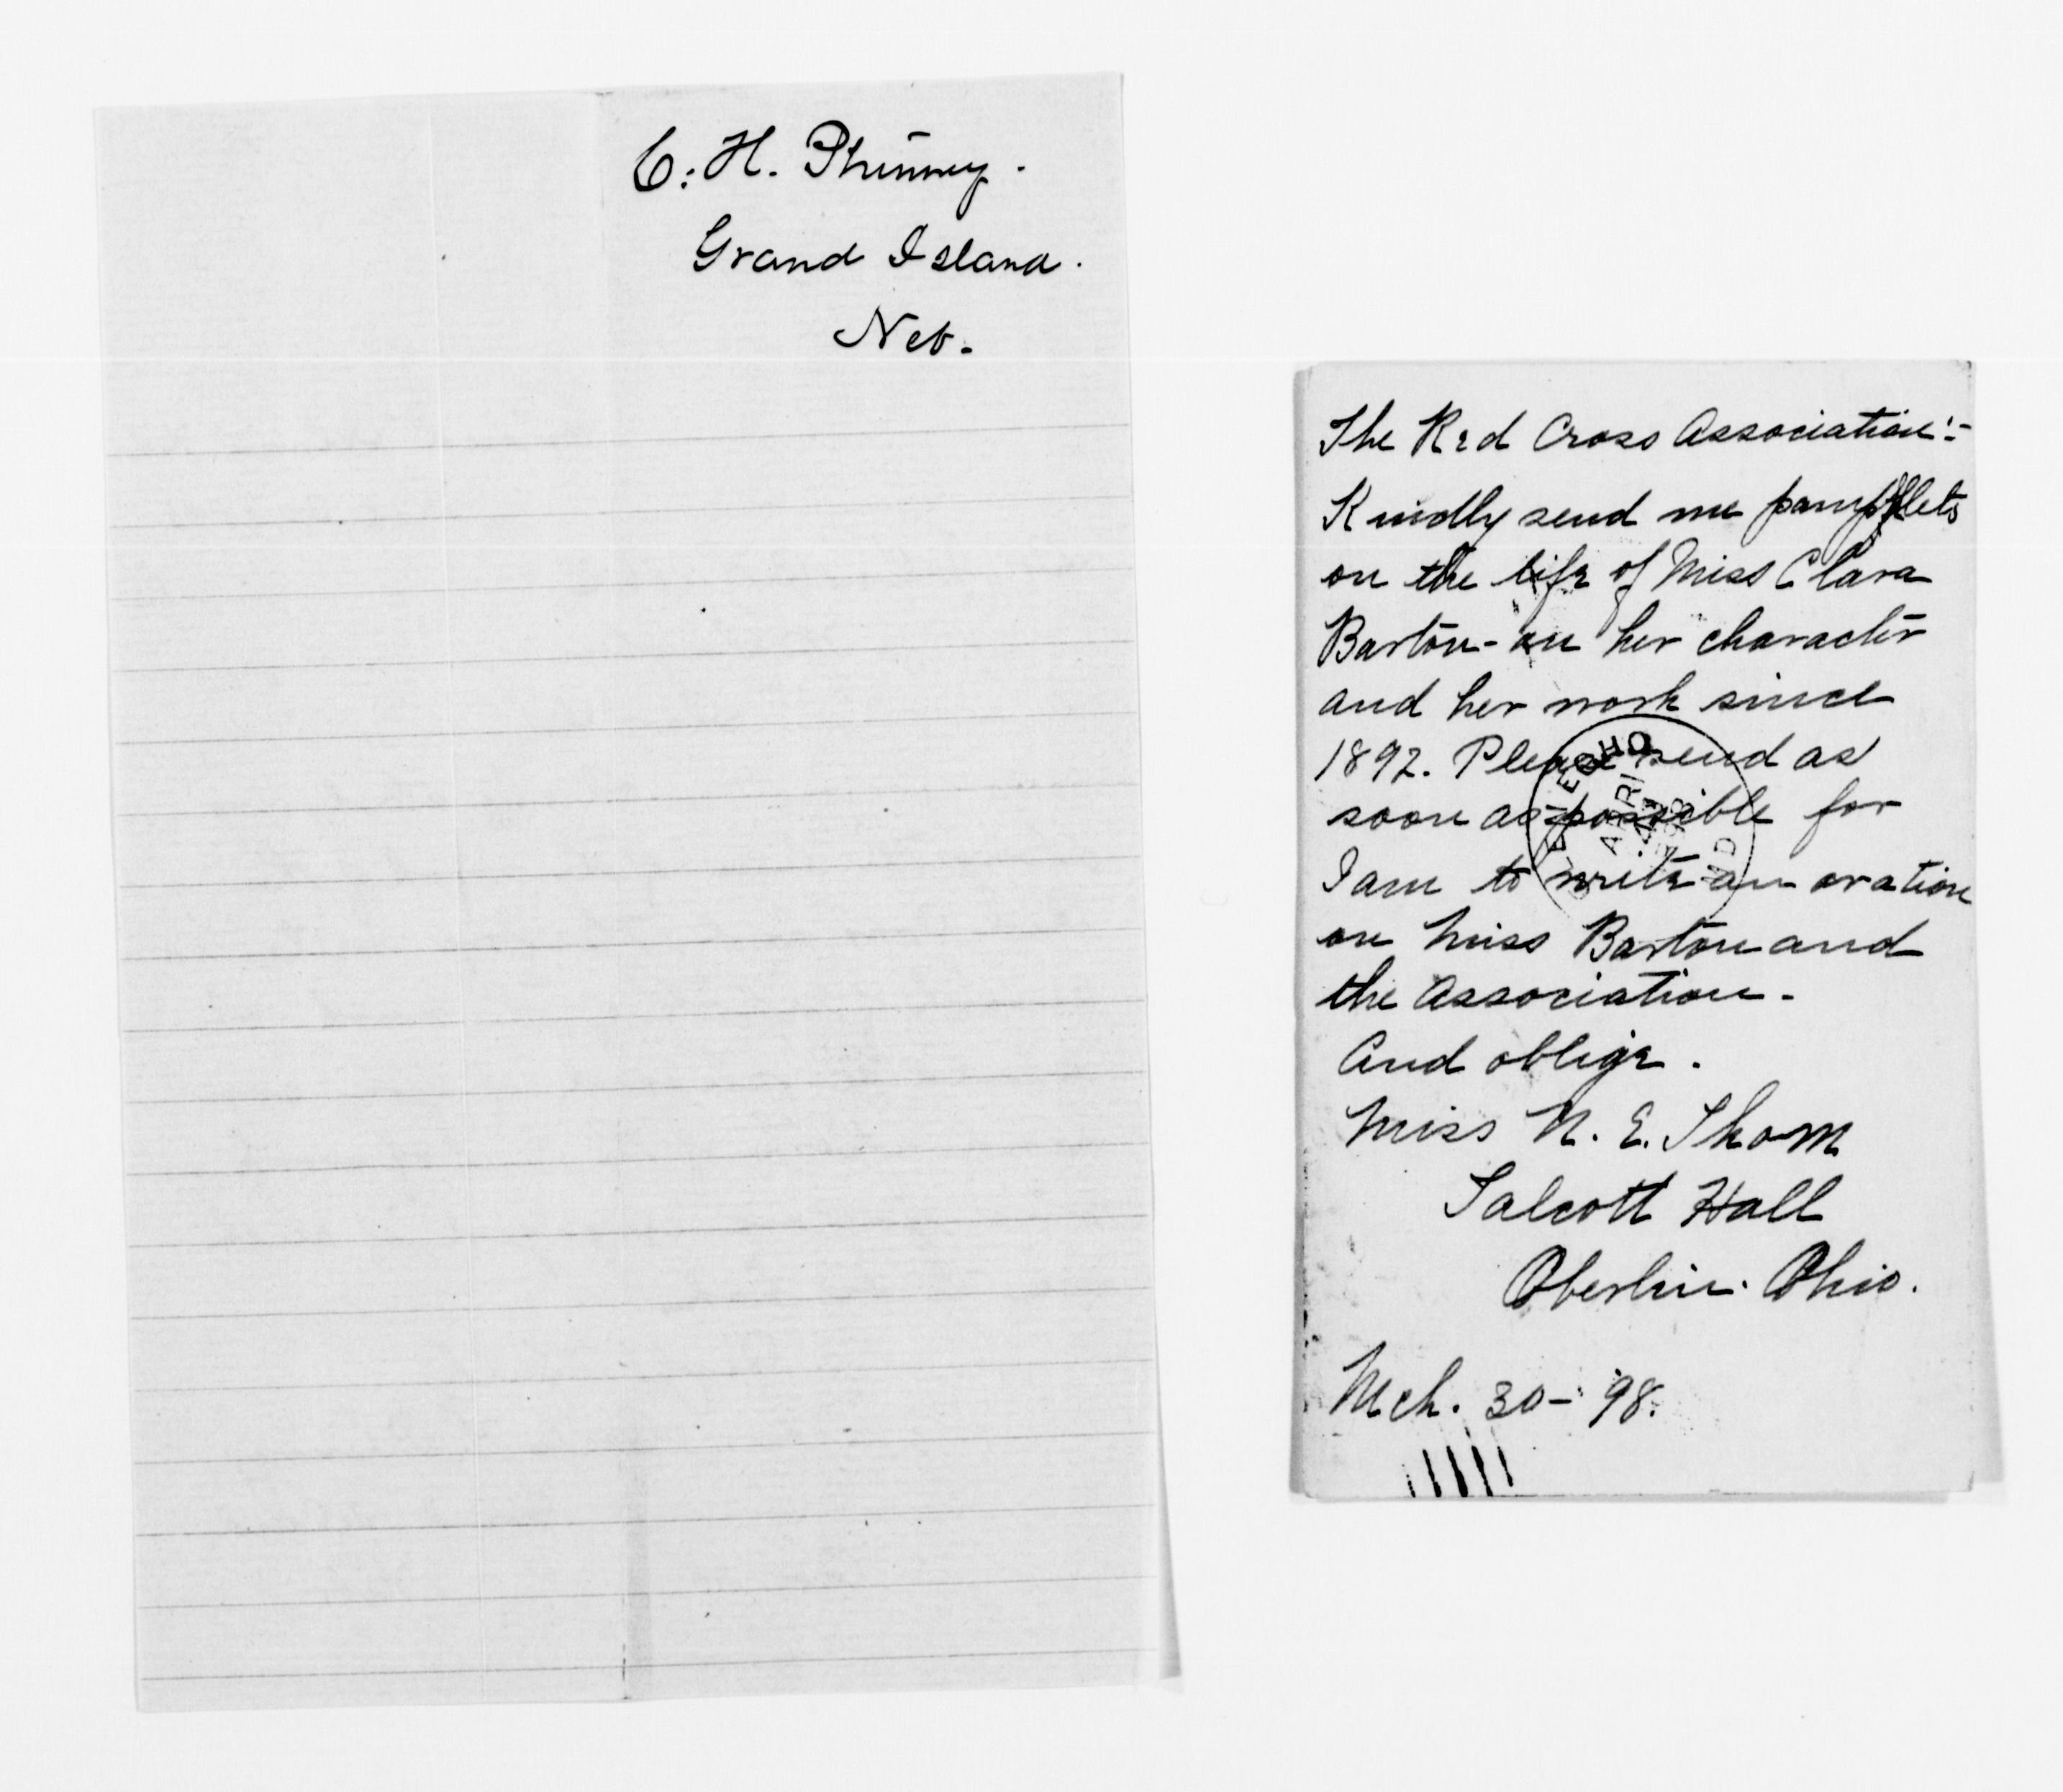 C. H. Phinney.
Grand Island.
Neb.
The Red Cross Association:-
Kindly send me pamphlets
on the life of Miss Clara
Barton - on her character
and her work since
1892. Please send as
soon as possible for
I am to write an oration
on Miss Barton and
the Association.
And oblige.
Miss N. E. Thom
Talcott Hall
Oberlin. Ohio.
Mch. 30 - '98.